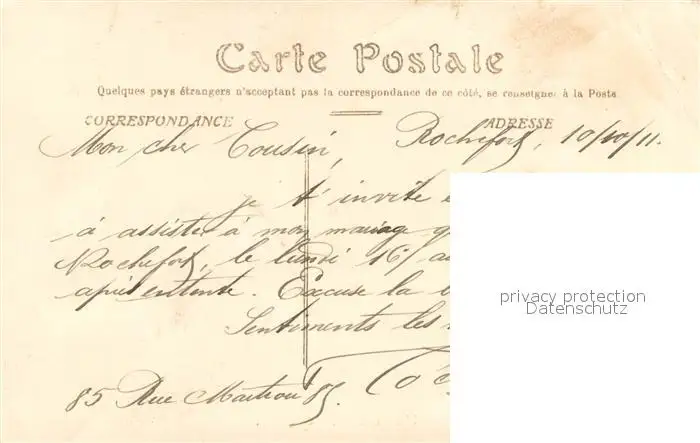 Carte Postale
Quelques pays étrangers n'acceptant pas la correspondance de ce côté, se renseigner à la Poste
CORRESPONDANCE
ADRESSE
Rochefort, 10/10/11.
Mon cher Cousin,
je t'invite
à assister à mon mariage
Rochefort, le lundi 16/
après entente. Excuse la
Sentiments les
85 Rue 85.
privacy protection
Datenschutz